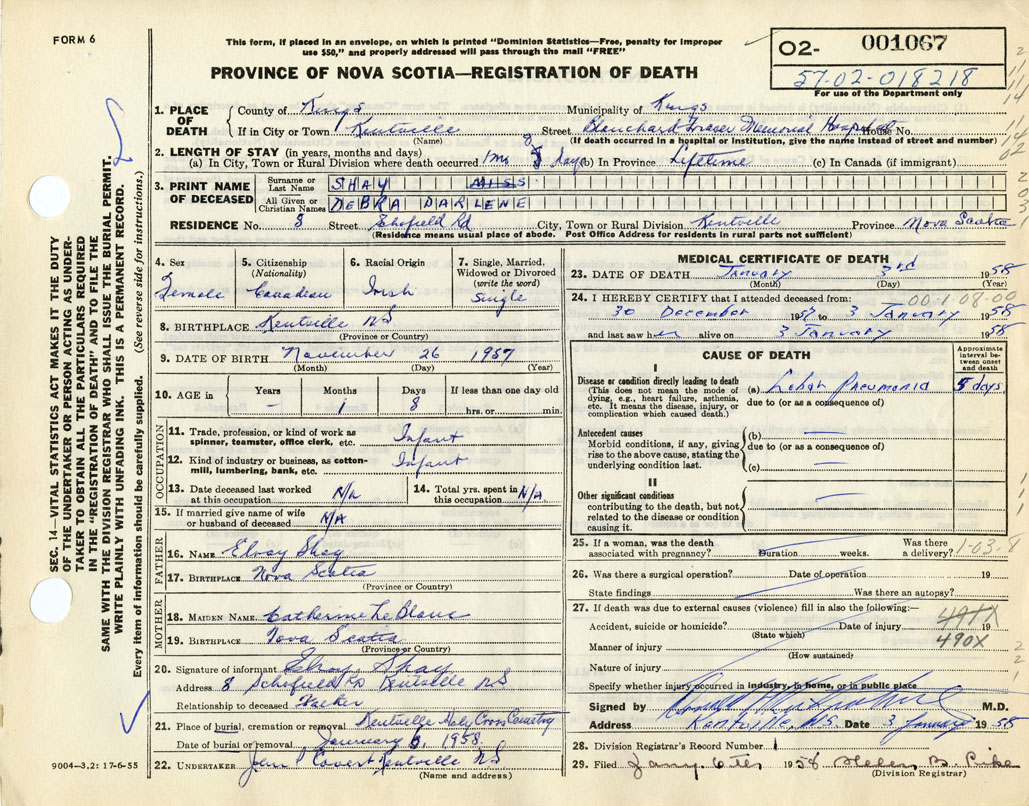 FORM 6
This form, if placed in an envelope, on which is printed "Dominion Statistics—Free, penalty for improper
use $50," and properly addressed will pass through the mail "FREE"
02- 001067
57-02-018218
For use of the Department only
PROVINCE OF NOVA SCOTIA—REGISTRATION OF DEATH
SEC. 14—VITAL STATISTICS ACT MAKES IT THE DUTY
OF THE UNDERTAKER OR PERSON ACTING AS UNDER-
TAKER TO OBTAIN ALL THE PARTICULARS REQUIRED
IN THE "REGISTRATION OF DEATH" AND TO FILE THE
SAME WITH THE DIVISION REGISTRAR WHO SHALL ISSUE THE BURIAL PERMIT.
WRITE PLAINLY WITH UNFADING INK. THIS IS A PERMANENT RECORD.
Every item of information should be carefully supplied. (See reverse side for instructions.)
1. PLACE OF DEATH
County of Kings Municipality of Kings
If in City or Town Kentville Street Blanchard Fraser Memorial Hospital House No.
(Name) (If death occurred in a hospital or institution, give the name instead of street and number)
2. LENGTH OF STAY (in years, months and days)
(a) In City, Town or Rural Division where death occurred 1 mo 8 days (b) In Province Lifetime (c) In Canada (if immigrant)
3. PRINT NAME OF DECEASED
Surname or Last Name SHAY MISS
All Given or Christian Names DEBRA DARLENE
RESIDENCE No. 8 Street Schofield Rd City, Town or Rural Division Kentville Province Nova Scotia
(Residence means usual place of abode. Post Office Address for residents in rural parts not sufficient)
4. Sex Female
5. Citizenship (Nationality) Canadian
6. Racial Origin Irish
7. Single, Married, Widowed or Divorced (write the word) Single
8. BIRTHPLACE Kentville NS
(Province or Country)
9. DATE OF BIRTH November 26 1957
(Month) (Day) (Year)
10. AGE in Years – Months 1 Days 8 If less than one day old hrs. or min.
OCCUPATION
11. Trade, profession, or kind of work as spinner, teamster, office clerk, etc. Infant
12. Kind of industry or business, as cotton-mill, lumbering, bank, etc. Infant
13. Date deceased last worked at this occupation N/A
14. Total yrs. spent in this occupation N/A
15. If married give name of wife or husband of deceased N/A
FATHER
16. NAME Elroy Shay
17. BIRTHPLACE Nova Scotia
(Province or Country)
MOTHER
18. MAIDEN NAME Catherine LeBlanc
19. BIRTHPLACE Nova Scotia
(Province or Country)
20. Signature of informant Elroy Shay
Address 8 Schofield Rd Kentville NS
Relationship to deceased Father
21. Place of burial, cremation or removal Kentville Holy Cross Cemetry
Date of burial or removal January 6, 1958
22. UNDERTAKER John P Covert Kentville NS
(Name and address)
9004-3.2: 17-6-55
MEDICAL CERTIFICATE OF DEATH
23. DATE OF DEATH January 3rd 1958
(Month) (Day) (Year)
24. I HEREBY CERTIFY that I attended deceased from: 00-1-08-00
30 December 1957 to 3 January 1958
and last saw her alive on 3 January 1958
CAUSE OF DEATH
Approximate interval between onset and death
I
Disease or condition directly leading to death
(This does not mean the mode of dying, e.g., heart failure, asthenia, etc. It means the disease, injury, or complication which caused death.)
(a) Lobar Pneumonia 5 days
due to (or as a consequence of)
Antecedent causes
Morbid conditions, if any, giving rise to the above cause, stating the underlying condition last.
(b) —
due to (or as a consequence of)
(c) —
II
Other significant conditions
contributing to the death, but not related to the disease or condition causing it.
25. If a woman, was the death associated with pregnancy? Duration weeks. Was there a delivery? 1-03-8
26. Was there a surgical operation? Date of operation 19
State findings Was there an autopsy?
27. If death was due to external causes (violence) fill in also the following:—
Accident, suicide or homicide? Date of injury 19 491X
(State which)
Manner of injury 490X
(How sustained)
Nature of injury
Specify whether injury occurred in industry, in home, or in public place
Signed by M.D.
Address Kentville, NS. Date 3 January 1958
28. Division Registrar's Record Number 1
29. Filed Jany. 6th 1958 Helen B. Pike
(Division Registrar)